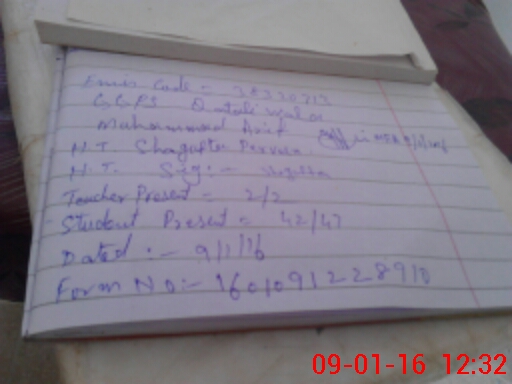 Emis Code = 38320213
GGPS
Muhammad Asif
N.T. Shagufta Perveen
N.T. Sig:-
Teacher Present = 2/2
Student Present = 42/47
Dated :- 9/1/16
Form No:- 1601091228910
09-01-16 12:32